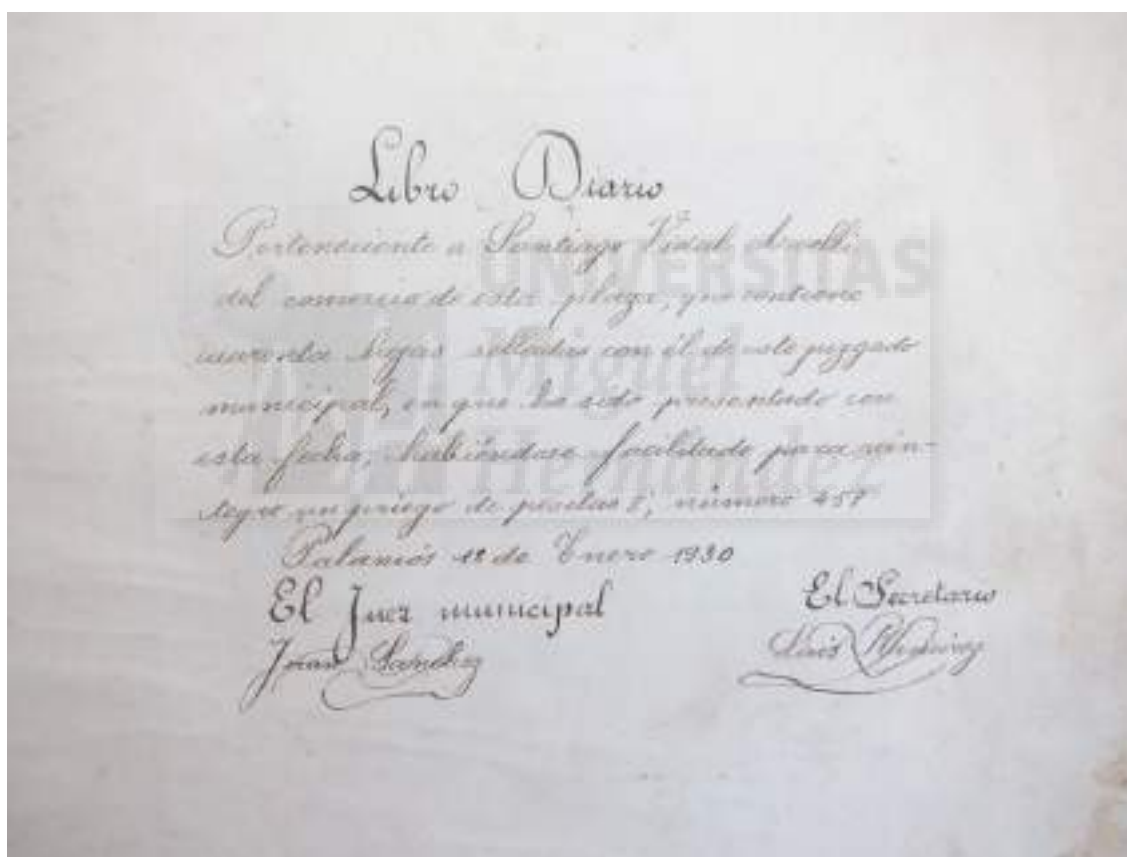 Libro Diario
Perteneciente a Santiago Vidal
del comercio de esta plaza, que contiene
cuarenta hojas selladas con él de este juzgado
municipal, en que ha sido presentado con
esta fecha, habiéndose facilitado para rein-
tegro un pliego de pesetas número
Palamós de Enero 1930
El Juez municipal
El Secretario
Juan Sanchez
Luis
UNIVERSITAS
Miguel
Hernández